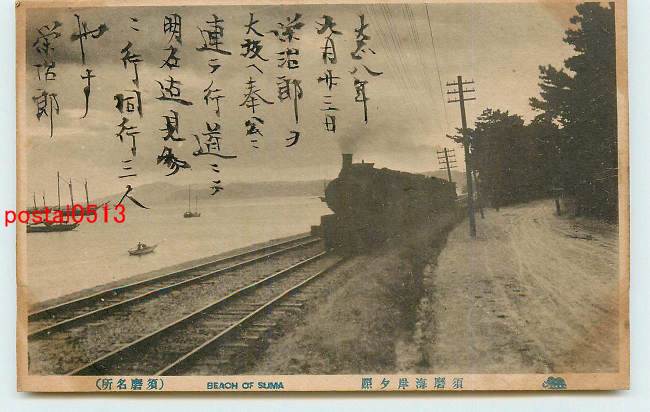 大正八年
九月廿三日
榮治郎ヲ
大坂ヘ奉公ニ
連テ行道ニテ
明石迄見参
ニ行同行三人
やす
榮治郎
postal0513
須磨海岸夕照
BEACH OF SUMA
(須磨名所)